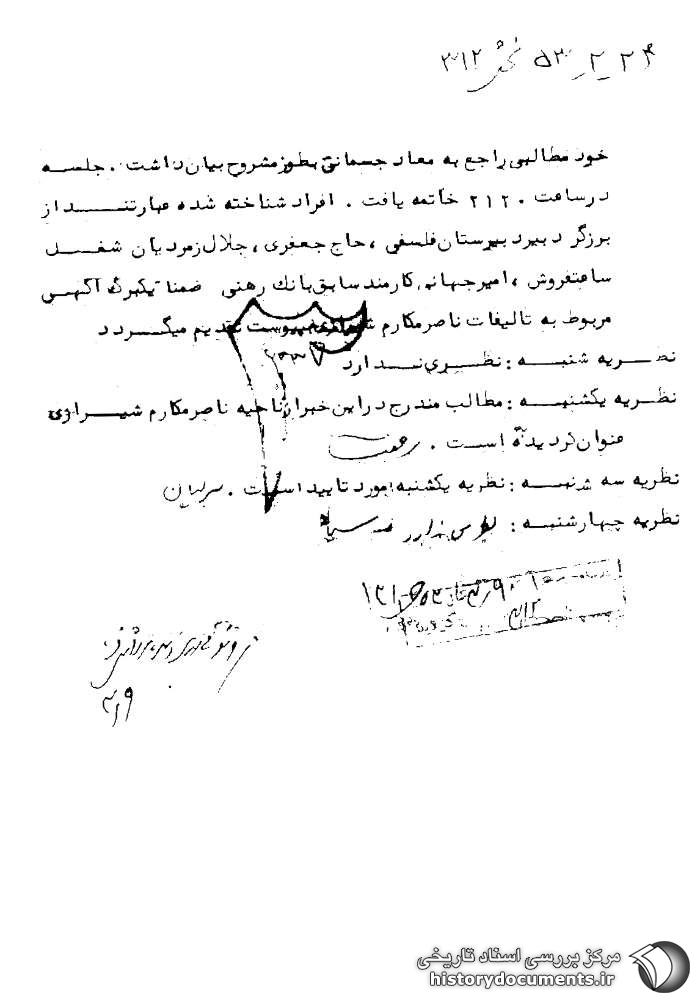 ۲۴ـ۲ـ۵۳ بخش ۳۱۲
خود مطالبی راجع به معاد جسمانی بطور مشروح بیان داشت . جلسه
در ساعت ۲۱۲۰ خاتمه یافت . افراد شناخته شده عبارتند از
برزگر دبیر دبیرستان فلسفی ، حاج جعفری ، جلال زمردیان شغل
ساعتفروش ، امیر جهانی کارمند سابق بانک رهنی ضمنا یکبرگ آگهی
مربوط به تالیفات ناصر مکارم شیرازی به پیوست تقدیم میگردد
نظریه شنبه : نظری ندارد
نظریه یکشنبه : مطالب مندرج در این خبر از ناحیه ناصر مکارم شیرازی
عنوان گردیده است .
نظریه سه شنبه : نظریه یکشنبه مورد تایید است .
نظریه چهارشنبه : نظری ندارد
۳۱۲
۳/۹
مرکز بررسی اسناد تاریخی
historydocuments.ir